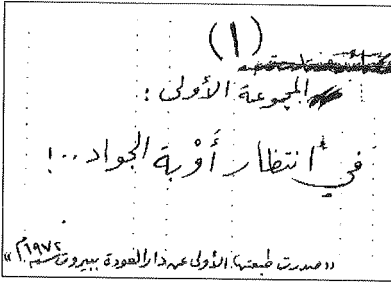 (١)
المجموعة الأولى :
في انتظار أَوْبة الجواد ..!
«صدرت طبعتها الأولى عن دار العودة ببيروت سنة ١٩٧٢م»